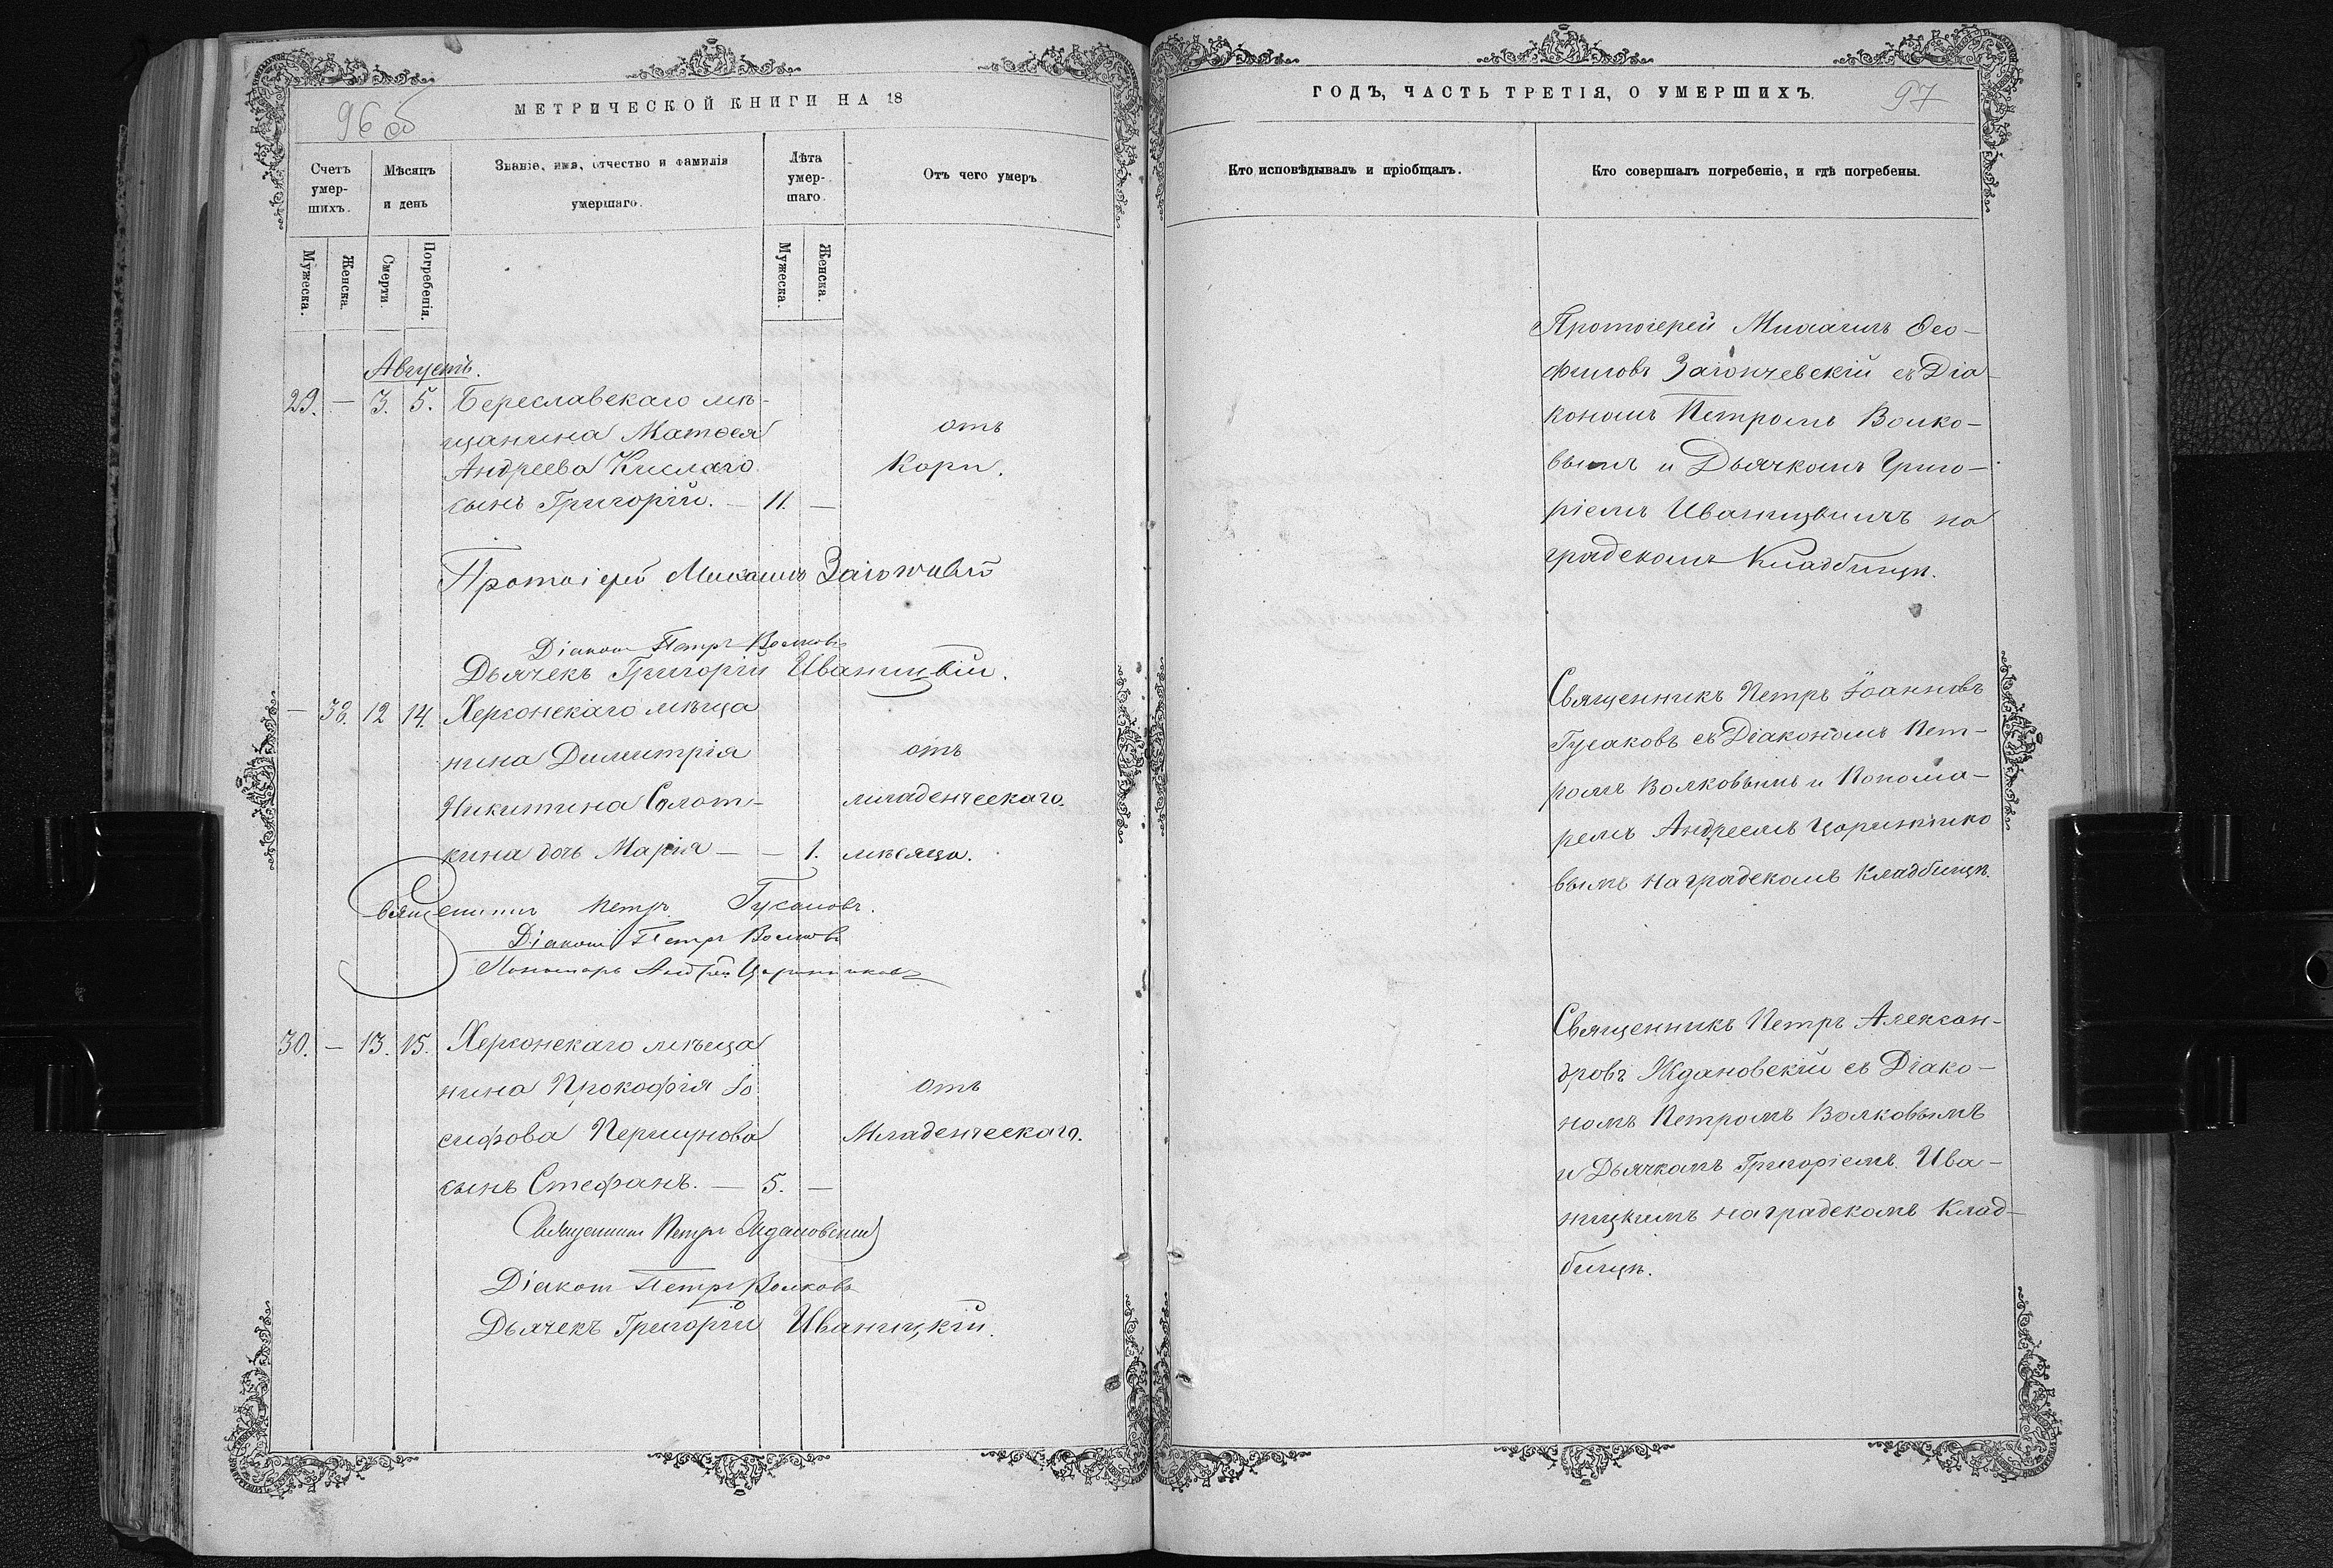 96 об
МЕТРИЧЕСКОЙ КНИГИ НА 18
Счетъ умер-шихъ.
Мѣсяцъ и день
Званіе, имя, отчество и фамилія умершаго.
Лѣта умер-шаго.
Отъ чего умеръ
Мужеска.
Женска.
Смерти.
Погребенія.
Мужеска.
Женска.
Августъ.
29. — 3. 5. Береславскаго мѣ-
щанина Матѳея
отъ
Андреева Кислаго
Кори.
сынъ Григорій. — 11. —
Протоіерей Михаилъ
Діаконъ Петръ Волковъ
Дьячекъ Григорій Иваницкій.
— 38. 12 14. Херсонскаго мѣща
нина Димитрія
отъ
Никитина Солот-
младенческаго.
кина дочь Марія — — 1. мѣсяца.
Священникъ Петръ Гусаковъ.
Діаконъ Петръ Волковъ
Пономарь Андрей
30. — 13. 15. Херсонскаго мѣща
нина Прокофія Іо
отъ
сифова Першунова
Младенческаго.
сынъ Стефанъ. — 5. —
Священникъ Петръ Ждановскій
Діаконъ Петръ Волковъ
Дьячекъ Григорій Иваницкій.
ГОДЪ, ЧАСТЬ ТРЕТІЯ, О УМЕРШИХЪ.
97
Кто исповѣдывалъ и пріобщалъ.
Кто совершалъ погребеніе, и гдѣ погребены.
Протоіерей Михаилъ Ѳео-
филовъ Загончевскій съ Діа-
кономъ Петромъ Волко-
вымъ и Дьячкомъ Григо-
ріемъ Иваницкимъ на
градскомъ Кладбищѣ.
Священникъ Петръ Іоанновъ
Гусаковъ съ Діакономъ Пет-
ромъ Волковымъ и Понома-
ремъ Андреемъ
вымъ на градскомъ Кладбищѣ.
Священникъ Петръ Алексан-
дровъ Ждановскій съ Діако-
номъ Петромъ Волковымъ
и Дьячкомъ Григоріемъ Ива-
ницкимъ на градскомъ Клад-
бищѣ.